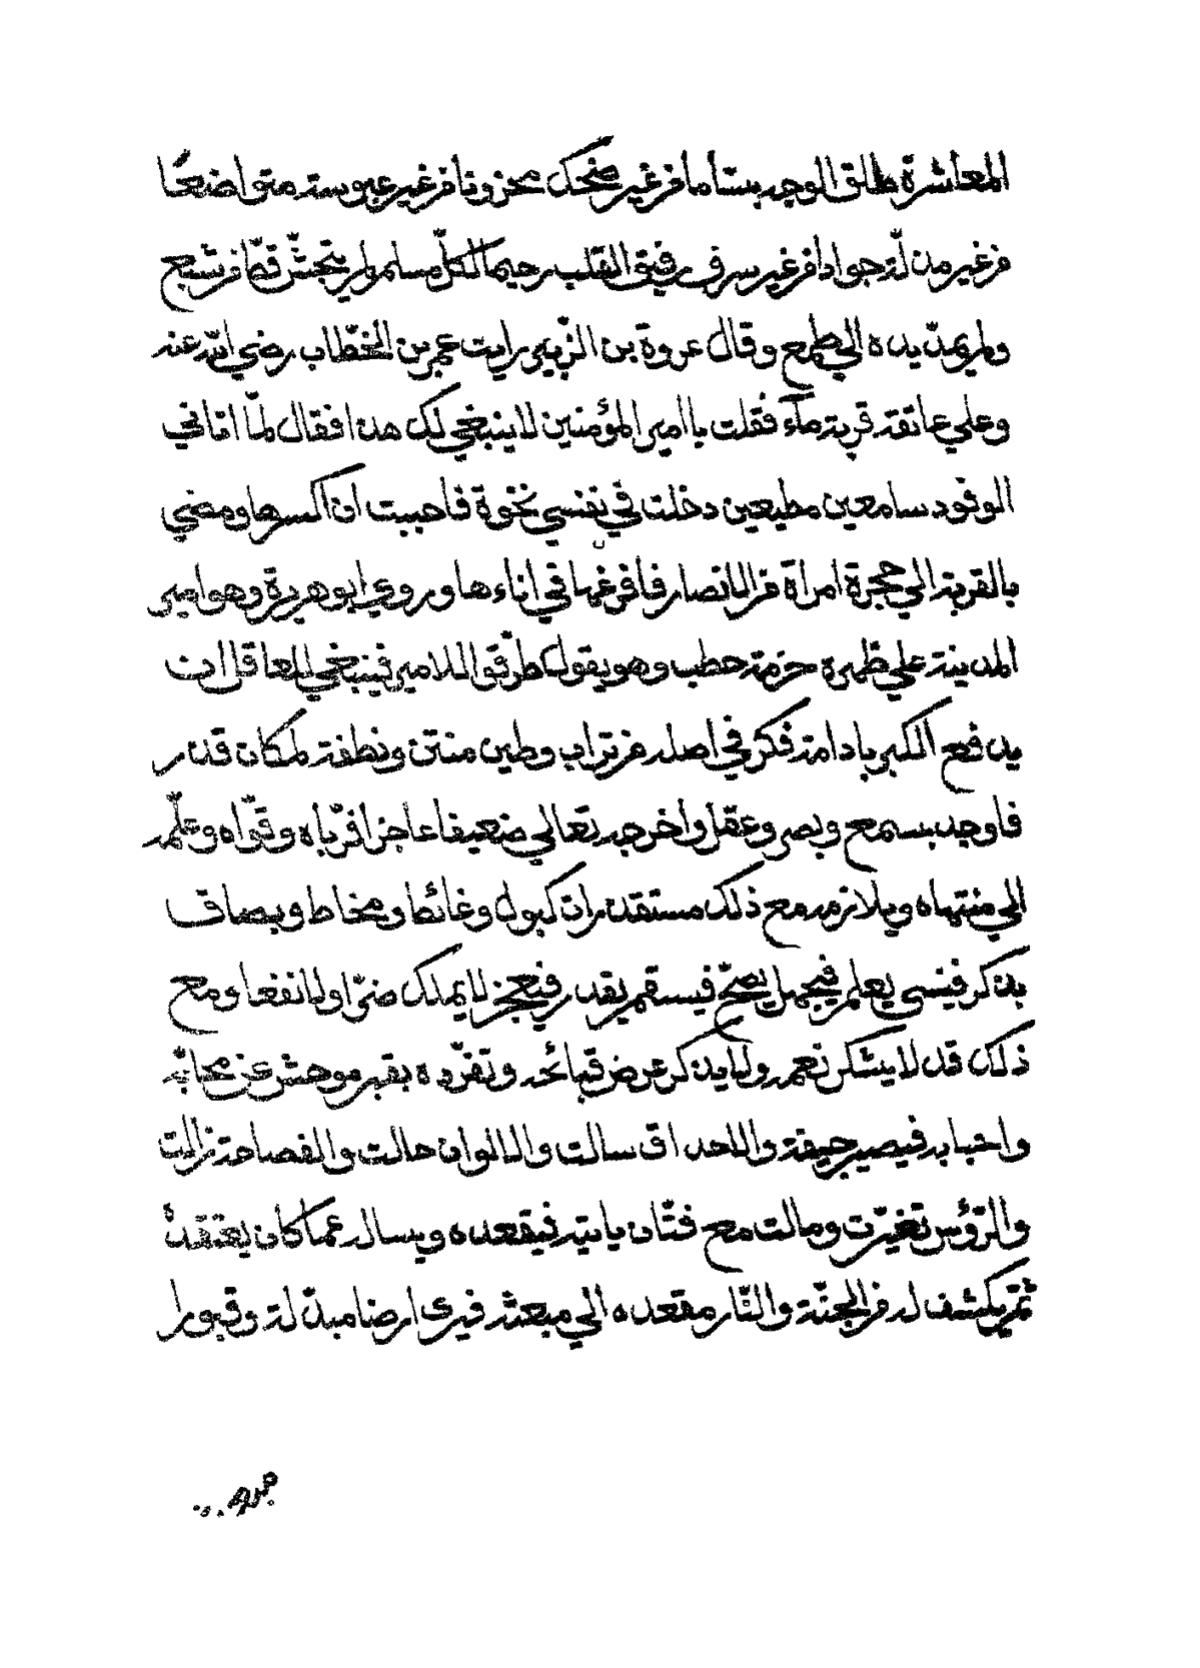 المعاشرة طلق الوجه بسّاما من غير ضحك محزونا من غير عبوسة متواضعًا
من غير مذلّة جوادا من غير سرف رقيق القلب رحيما لكلّ مسلم ولم يتجشّ قطّ من شبع
ولم يمدّ يده الي طمع وقال عروة بن الزّبير رايت عمر بن الخطّاب رضي الله عنه
وعلي عاتقه قربة مآء فقلت يا امير المؤمنين لا ينبغي لك هذا فقال لمّا اتاني
الوفود سامعين مطيعين دخلت في نفسي نخوة فاحببت ان اكسرها ومضي
بالقربة الي حجرة امراة من الانصار فافرغها في اناءها وروي ابو هريرة وهو امير
المدينة علي ظهره حزمة حطب وهو يقول طرّقوا للامير فينبغي للعاقل ان
يدفع الكبر بادامة فكر في اصله من تراب وطين منتن ونطفة لمكان قذر
فاوجد بسمع وبصر وعقل واخرجه تعالي ضعيفا عاجزا فربّاه وقوّاه وعلّمه
الي منتهاه ويلازمه مع ذلك مستقذرات كبول وغائط ومخاط وبصاق
يذكر فينسي يعلم فيجهل يصحّ فيسقم يقدر فيعجز لا يملك ضرّا ولا نفعا ومع
ذلك قد لا يشكر نعمه ولا يذكر عرض قبائحه وتفرّده بقبر موحش عن محابّه
واحبابه فيصير جيفة والاحداق سالت والالوان حالت والفصاحة زالت
والرّؤس تغيّرت ومالت مع فتّان ياتيه فيقعده ويساله عما كان يعتقده
ثمّ يكشف له من الجنّة والنّار مقعده الي مبعثه فيرى ارضا مبدّلة وقبورا